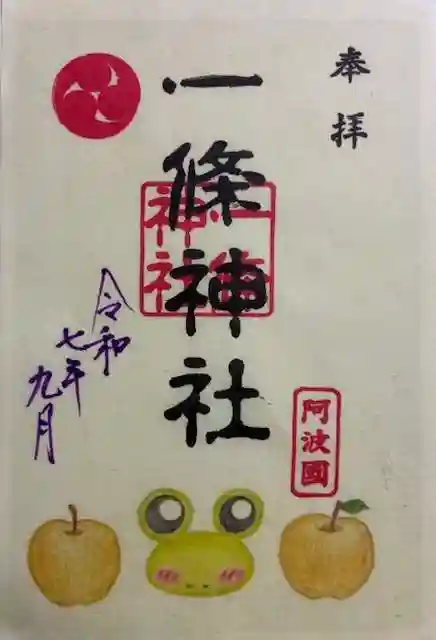 奉拝
一條神社
一條神社
阿波國
令和
七年
九月